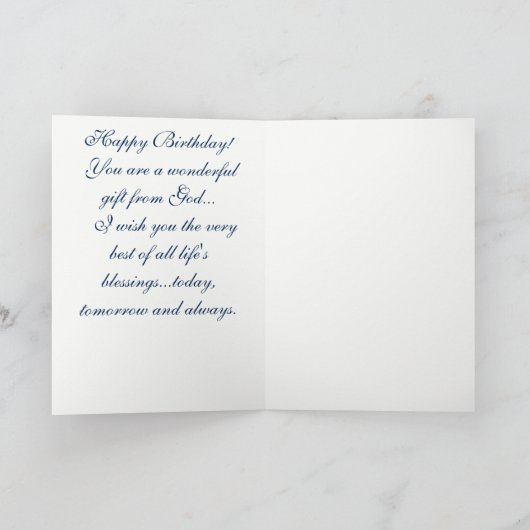 Happy Birthday!
You are a wonderful
gift from God...
I wish you the very
best of all life's
blessings...today,
tomorrow and always.